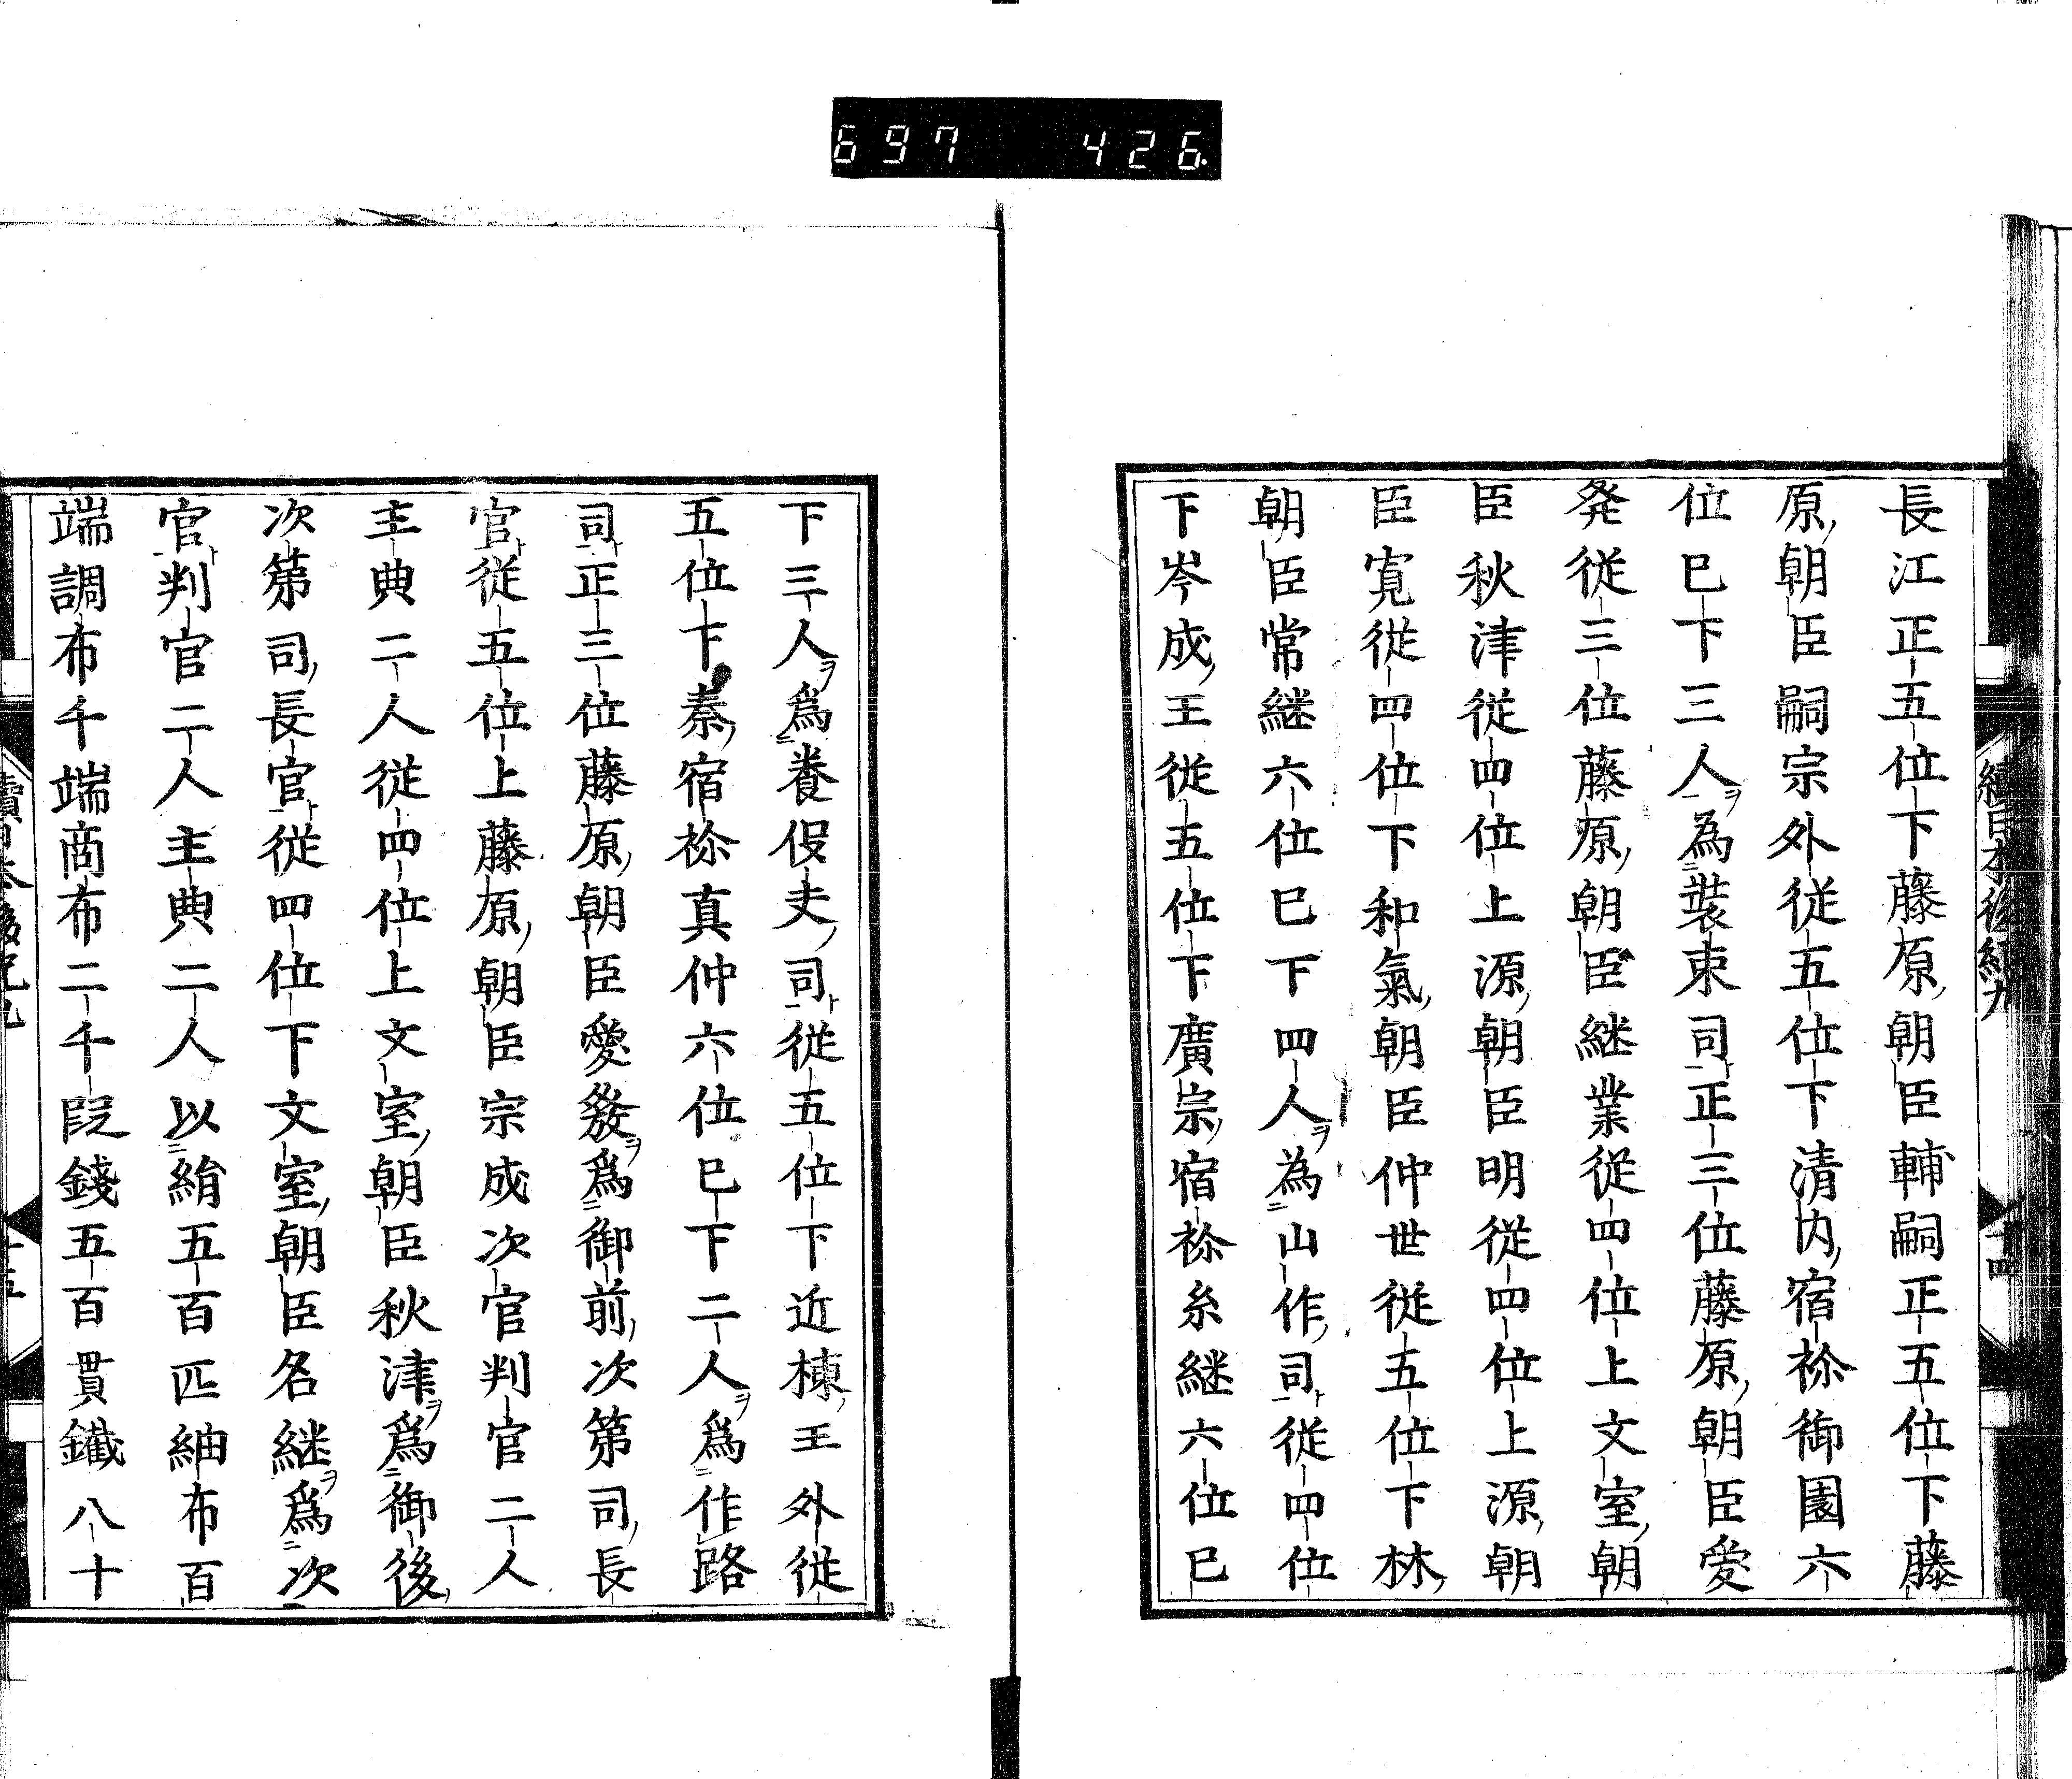 697 426
續日本後紀九
十四
長江正五位下藤原朝臣輔嗣正五位下藤
原朝臣嗣宗外従五位下清内宿祢御園六
位巳下三人ヲ為ニ装束司ト一正三位藤原朝臣愛
発従三位藤原朝臣継業従四位上文室朝
臣秋津従四位上源朝臣明従四位上源朝
臣寛従四位下和氣朝臣仲世従五位下林
朝臣常継六位巳下四人ヲ為ニ山作司ト一従四位
下岑成王従五位下廣宗宿祢糸継六位巳
下三人ヲ爲ニ養伇夫司ト一従五位下近棟王外従
五位下秦宿祢真仲六位巳下二人ヲ爲ニ作路
司ト一正三位藤原朝臣愛發ヲ爲ニ御前次第司長
官ト一従五位上藤原朝臣宗成次官判官二人
主典二人従四位上文室朝臣秋津ヲ爲ニ御後
次第司長官ト一従四位下文室朝臣名継ヲ爲ニ次
官ト一判官二人主典二人以ニ絹五百匹紬布百
端調布千端商布二千段錢五百貫鐵八十